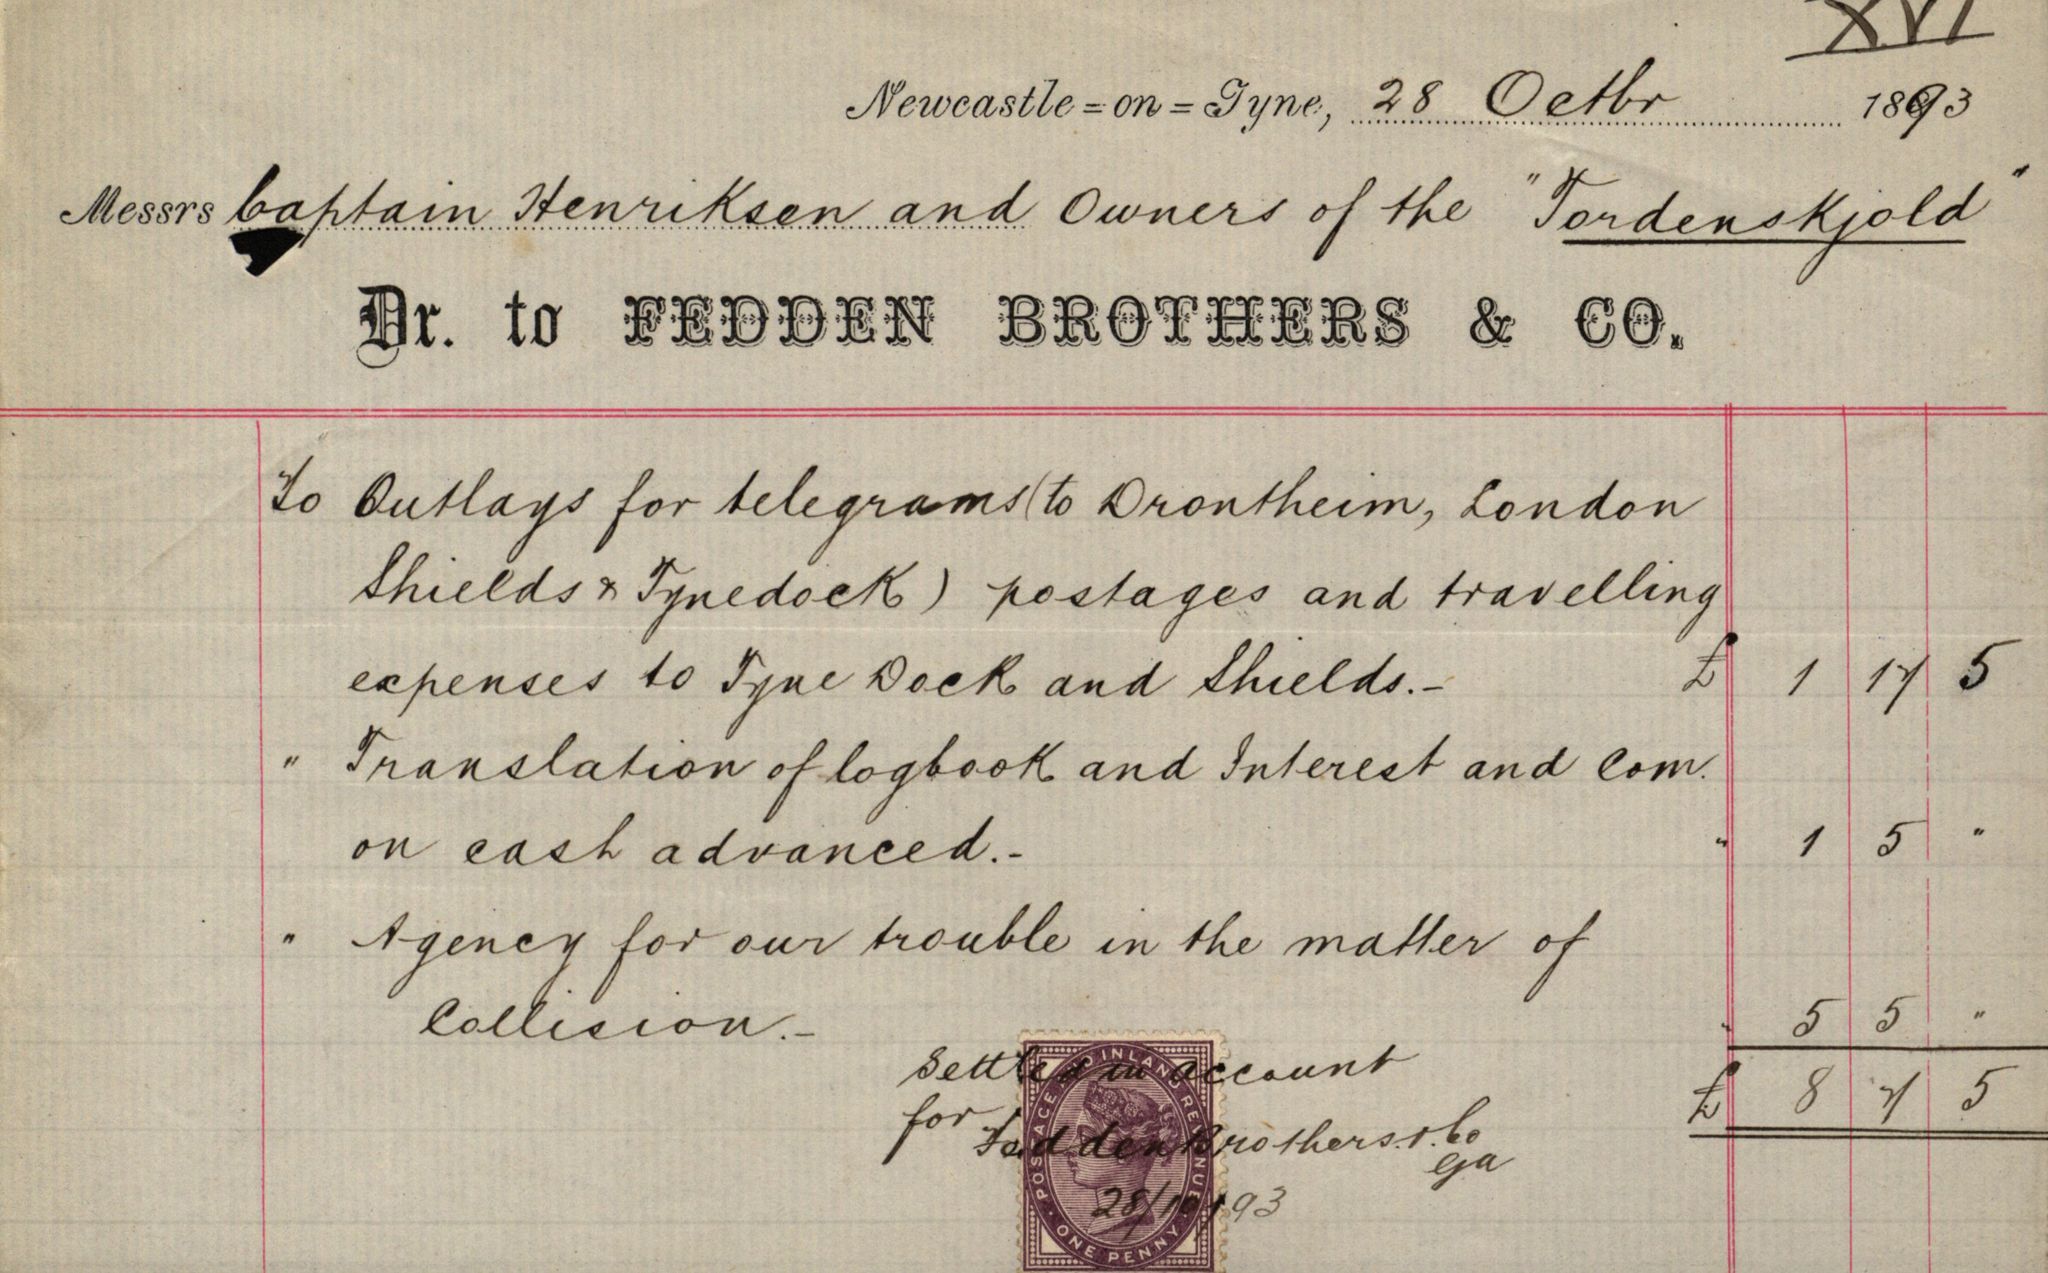 XVI
Newcastle=on=Tyne, 28 Octbr 1893
Messrs Captain Henriksen and Owners of the "Tordenskjold"
Dr. to FEDDEN BROTHERS & CO.
To Outlays for telegrams (to Drontheim, London
Shields & Tynedock) postages and travelling
expenses to Tyne Dock and Shields.- £ 1 17 5
" Translation of logbook and Interest and Com.
on cash advanced.- " 1 5 "
" Agency for our trouble in the matter of
Collision.- " 5 5 "
£ 8 7 5
Settled in account
for Fedden Brothers & Co
28/10/93
POSTAGE AND INLAND REVENUE
ONE PENNY